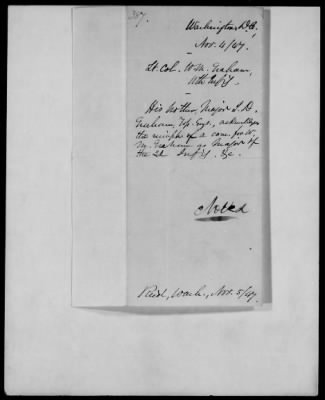 Washington D.C.,
Nov. 4/47.
Lt. Col. W. M. Graham,
11th Inf'y.
His brother, Major J. D.
Graham, Top. Engs., acknowledges
the receipt of a com. for W.
M. Graham as Major of
the 2d Inf'y. &c.
Noted
Recd, Wash., Nov. 5/47.